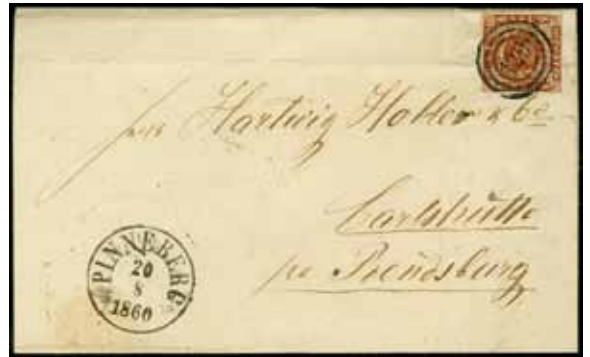 Hartwig Holler & Co
Carlshütte
pr Rendsburg
PINNEBERG
20
8
1860